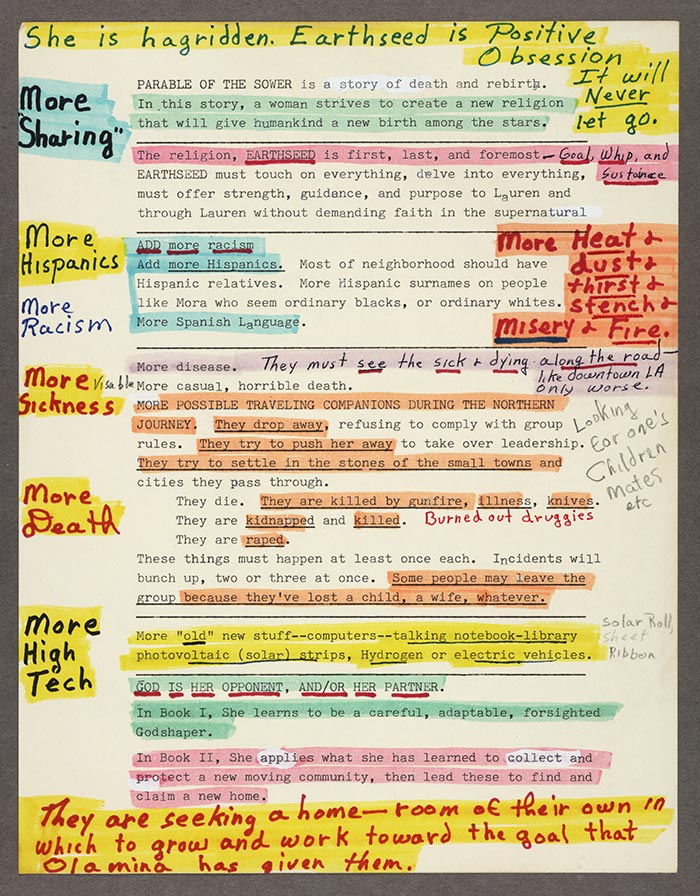 She is hagridden. Earthseed is Positive
Obsession
It will
Never
let go.
More
"Sharing"
PARABLE OF THE SOWER is a story of death and rebirth.
In this story, a woman strives to create a new religion
that will give humankind a new birth among the stars.
The religion, EARTHSEED is first, last, and foremost—Goal, Whip, and
Sustainace
EARTHSEED must touch on everything, delve into everything,
must offer strength, guidance, and purpose to Lauren and
through Lauren without demanding faith in the supernatural
More
Hispanics
More
Racism
ADD more racism
Add more Hispanics. Most of neighborhood should have
Hispanic relatives. More Hispanic surnames on people
like Mora who seem ordinary blacks, or ordinary whites.
More Spanish Language.
More Heat &
dust &
thirst &
stench &
Misery & Fire.
More disease. They must see the sick & dying along the road—
like downtown LA
only worse.
More Visable
Sickness
More casual, horrible death.
MORE POSSIBLE TRAVELING COMPANIONS DURING THE NORTHERN
JOURNEY. They drop away, refusing to comply with group
rules. They try to push her away to take over leadership.
They try to settle in the stones of the small towns and
cities they pass through.
Looking
For one's
Children
mates
etc
More
Death
They die. They are killed by gunfire, illness, knives.
They are kidnapped and killed. Burned out druggies
They are raped.
These things must happen at least once each. Incidents will
bunch up, two or three at once. Some people may leave the
group because they've lost a child, a wife, whatever.
More
High
Tech
More "old" new stuff--computers--talking notebook-library
photovoltaic (solar) strips, Hydrogen or electric vehicles.
solar Roll,
sheet
Ribbon
GOD IS HER OPPONENT, AND/OR HER PARTNER.
In Book I, She learns to be a careful, adaptable, forsighted
Godshaper.
In Book II, She applies what she has learned to collect and
protect a new moving community, then lead these to find and
claim a new home.
They are seeking a home—room of their own in
which to grow and work toward the goal that
Olamina has given them.